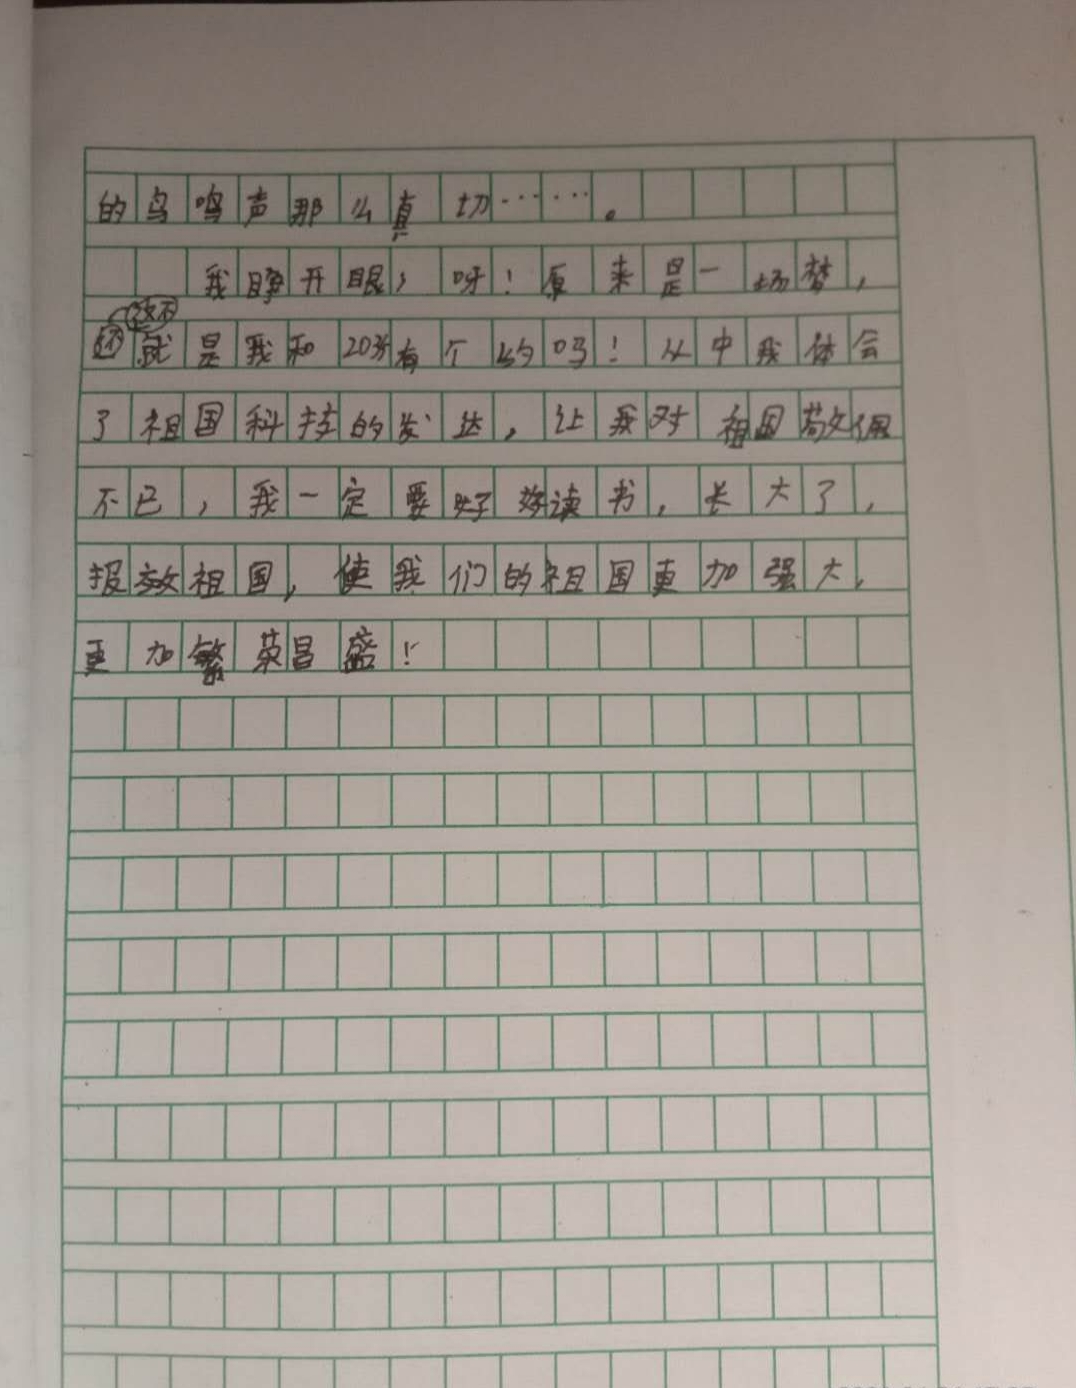 的鸟鸣声那么真切……。
我睁开眼，呀！原来是一场梦，
这不
就是我和20岁有个约吗！从中我体会
了祖国科技的发达，让我对祖国敬佩
不已，我一定要好好读书，长大了，
报效祖国，使我们的祖国更加强大，
更加繁荣昌盛！